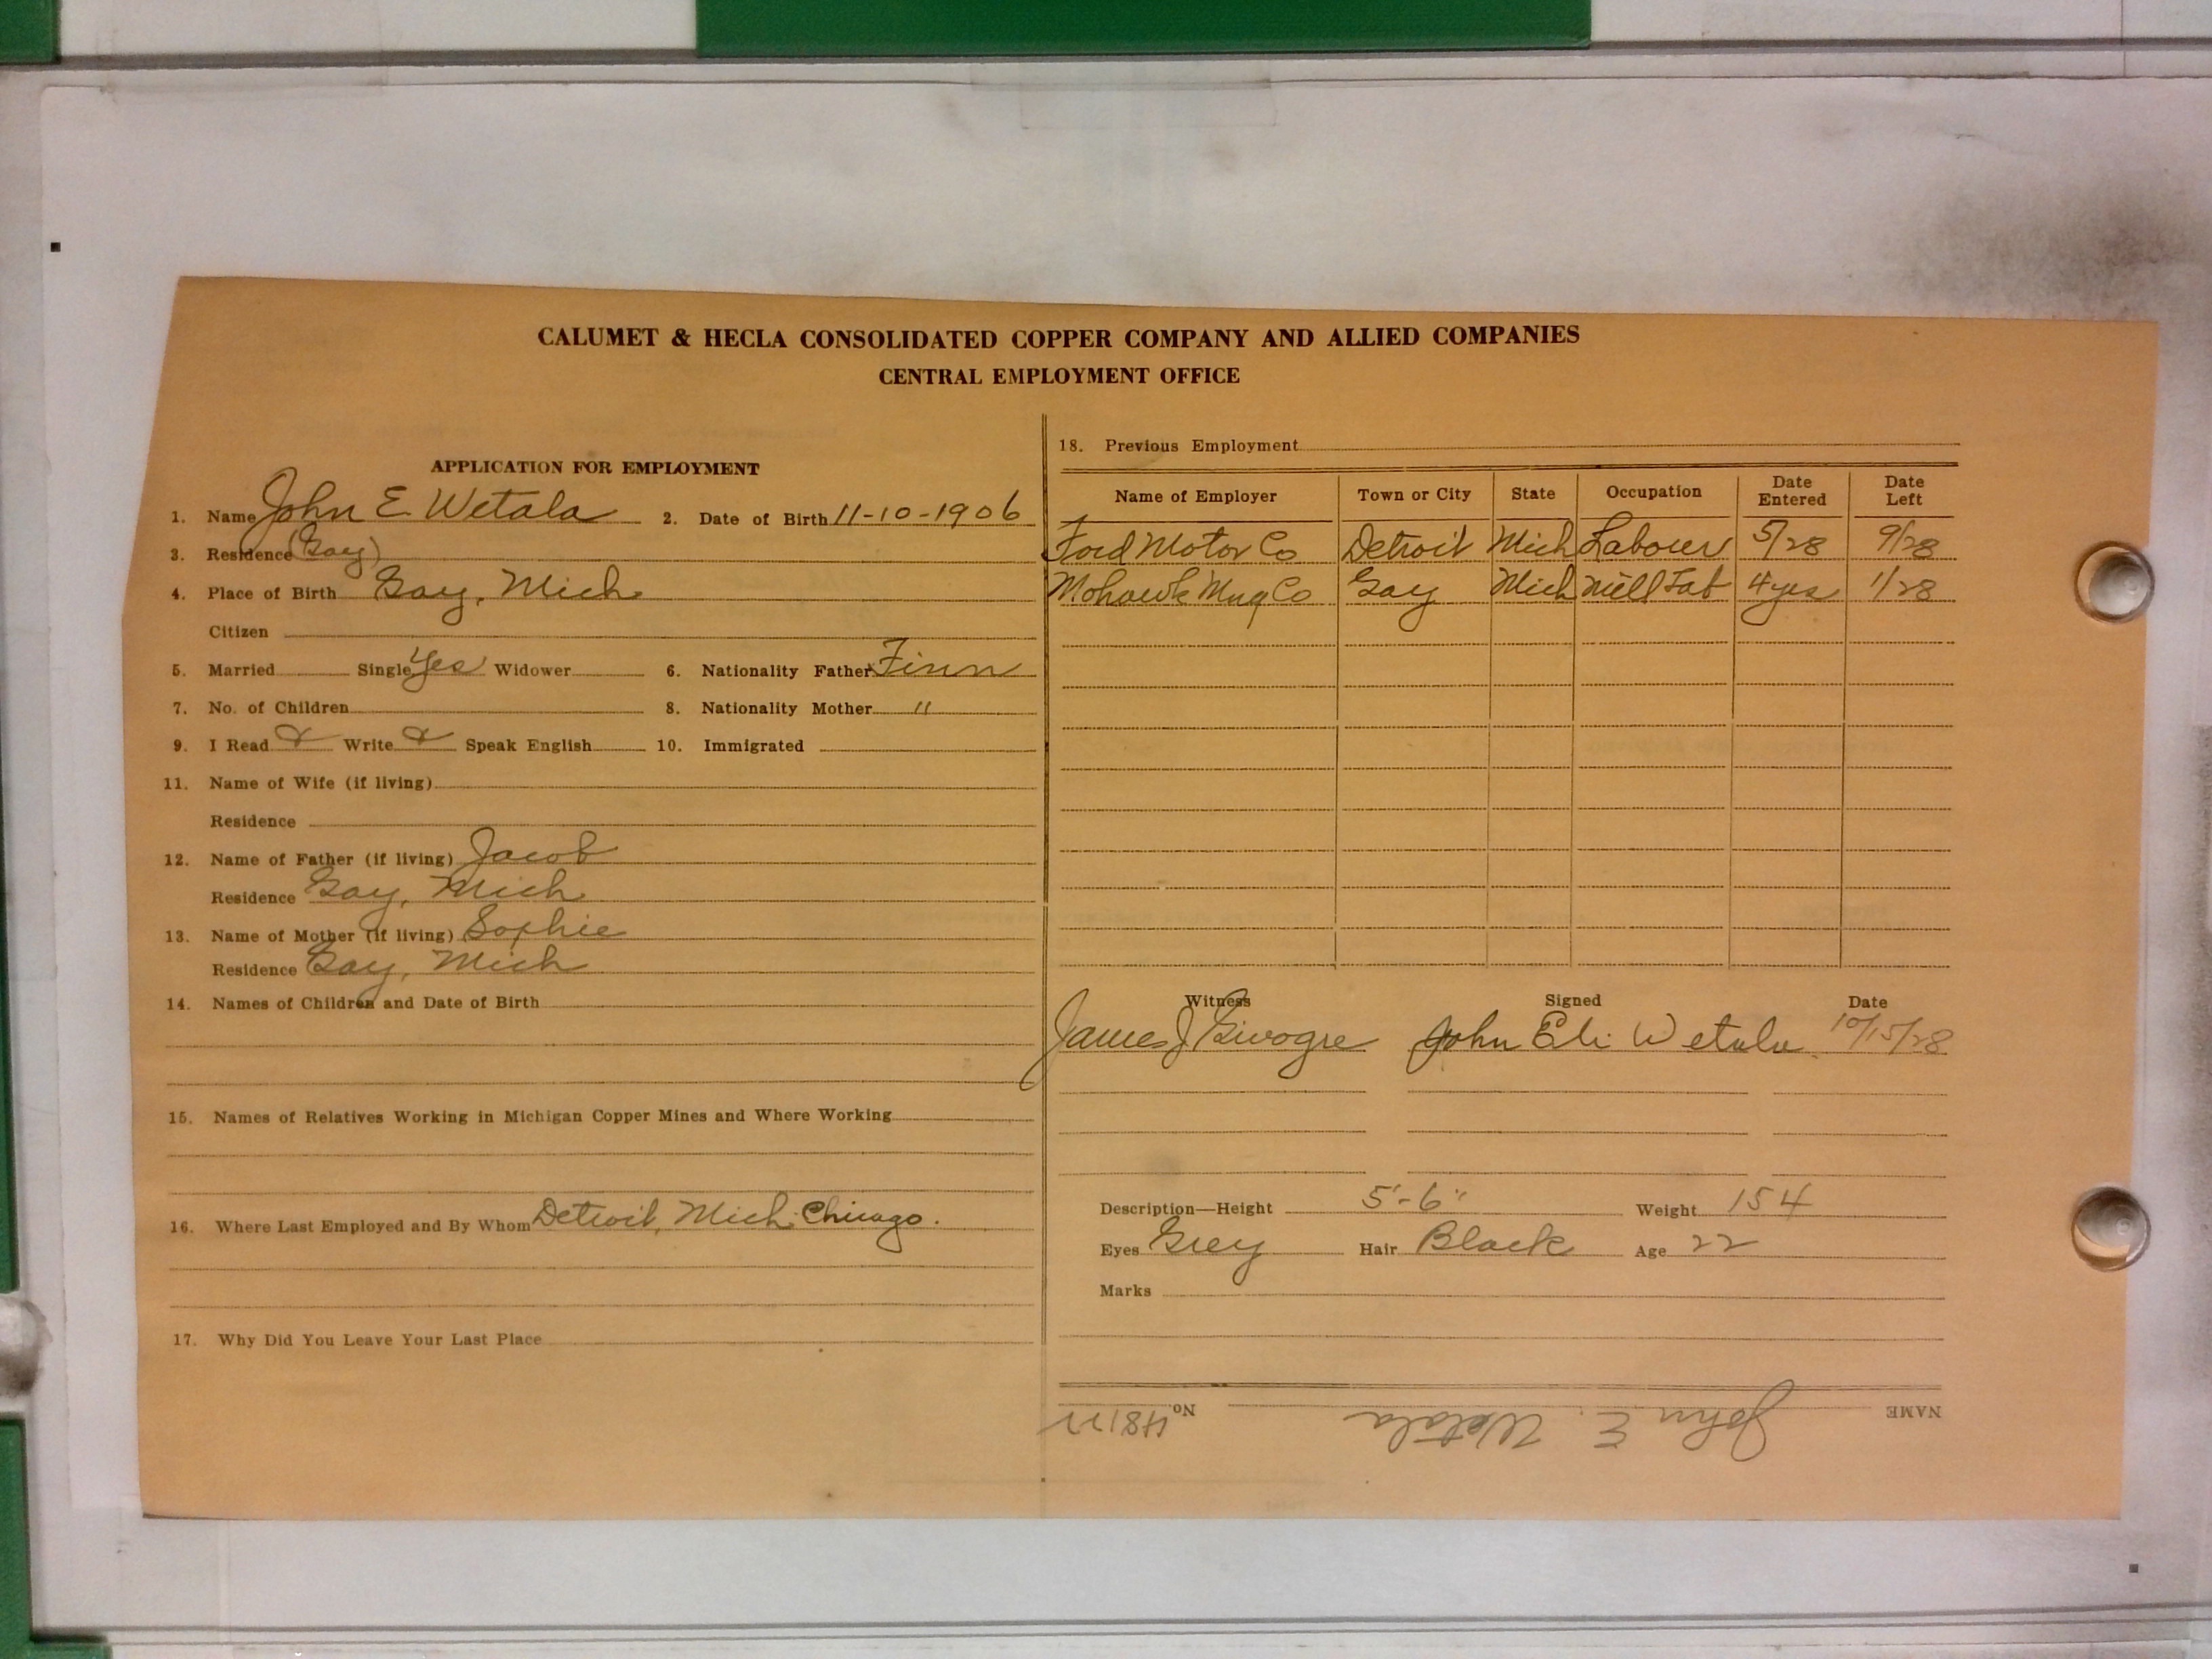 CALUMET & HECLA CONSOLIDATED COPPER COMPANY AND ALLIED COMPANIES
CENTRAL EMPLOYMENT OFFICE
APPLICATION FOR EMPLOYMENT
1. Name John E Wetala 2. Date of Birth 11-10-1906
3. Residence (Gay)
4. Place of Birth Gay, Mich
Citizen
5. Married Single Yes Widower 6. Nationality Father Finn
7. No. of Children 8. Nationality Mother "
9. I Read Write Speak English 10. Immigrated
11. Name of Wife (if living)
Residence
12. Name of Father (if living) Jacob
Residence Gay, Mich
13. Name of Mother (if living) Sophie
Residence Gay, Mich
14. Names of Children and Date of Birth
15. Names of Relatives Working in Michigan Copper Mines and Where Working
16. Where Last Employed and By Whom Detroit, Mich. Chicago.
17. Why Did You Leave Your Last Place
18. Previous Employment
Name of Employer Town or City State Occupation Date Entered Date Left
Ford Motor Co Detroit Mich Labourer 5/28 9/28
Mohawk Mng Co Gay Mich Mill 4 yrs 1/28
Witness Signed Date
James J John Eli Wetala 10/15/28
Description—Height 5'-6" Weight 154
Eyes Grey Hair Black Age 22
Marks
NAME John E. Wetala No.